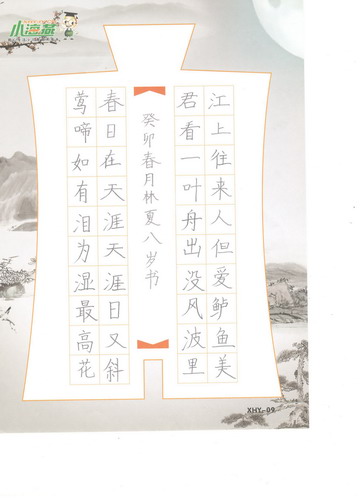 小海燕
江上往来人但爱鲈鱼美
君看一叶舟出没风波里
癸卯春月林夏八岁书
春日在天涯天涯日又斜
莺啼如有泪为湿最高花
XHY-09